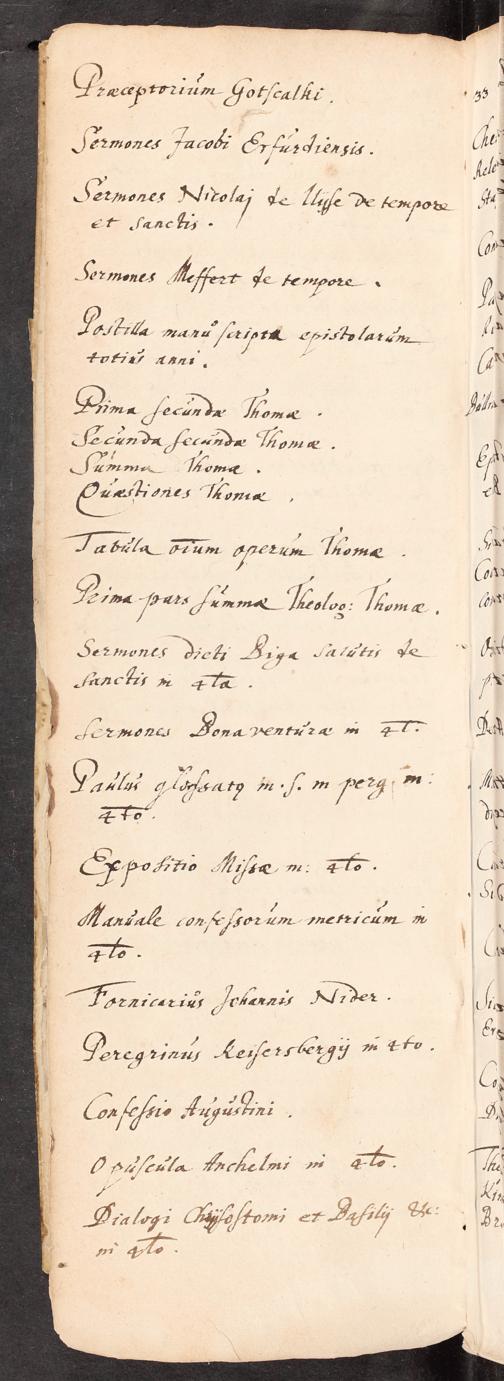 Præceptorium Gotscalhi.
Sermones Jacobi Erfurdiensis.
Sermones Nicolaj de llÿse de tempore
et sanctis.
Sermones Meffert de tempore.
Postilla manuscripta epistolarum
totius anni.
Prima secundæ Thomæ.
Secunda secundæ Thomæ.
Summa Thomæ.
Quæstiones Thomæ.
Tabula oīum operum Thomæ.
Prima pars summæ Theolog: Thomæ.
Sermones dicti Biga salutis de
sanctis in 4ta.
Sermones Bonaventuræ in 4t.
Paulus glossatq m.s. in perg. in:
4to.
Expositio Missæ in: 4to.
Manuale confessorum metricum in
4to.
Fornicarius Johannis Nider.
Peregrinus Keisersbergij in 4to.
Confessio Augustini.
Opuscula Anchelmi in 4to.
Dialogi Chrÿsostomi et Basilij &c:
in 4to.
33